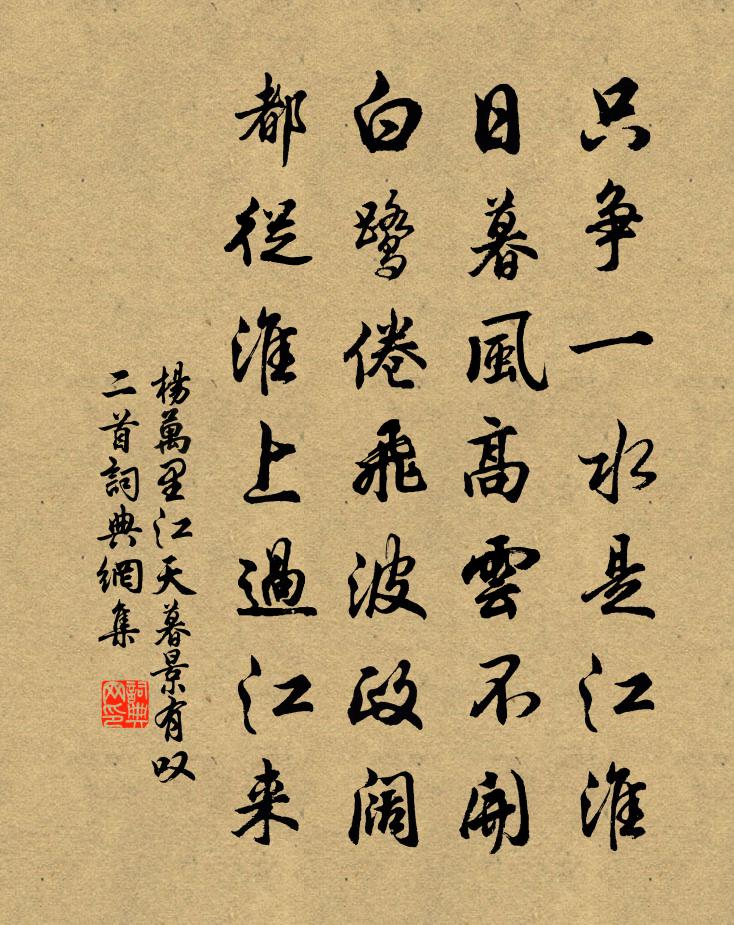 只争一水是江淮
日暮風高雲不開
白鷺倦飛波政闊
都從淮上過江来
楊萬里江天暮景有叹
二首詞典網集
詞典网印